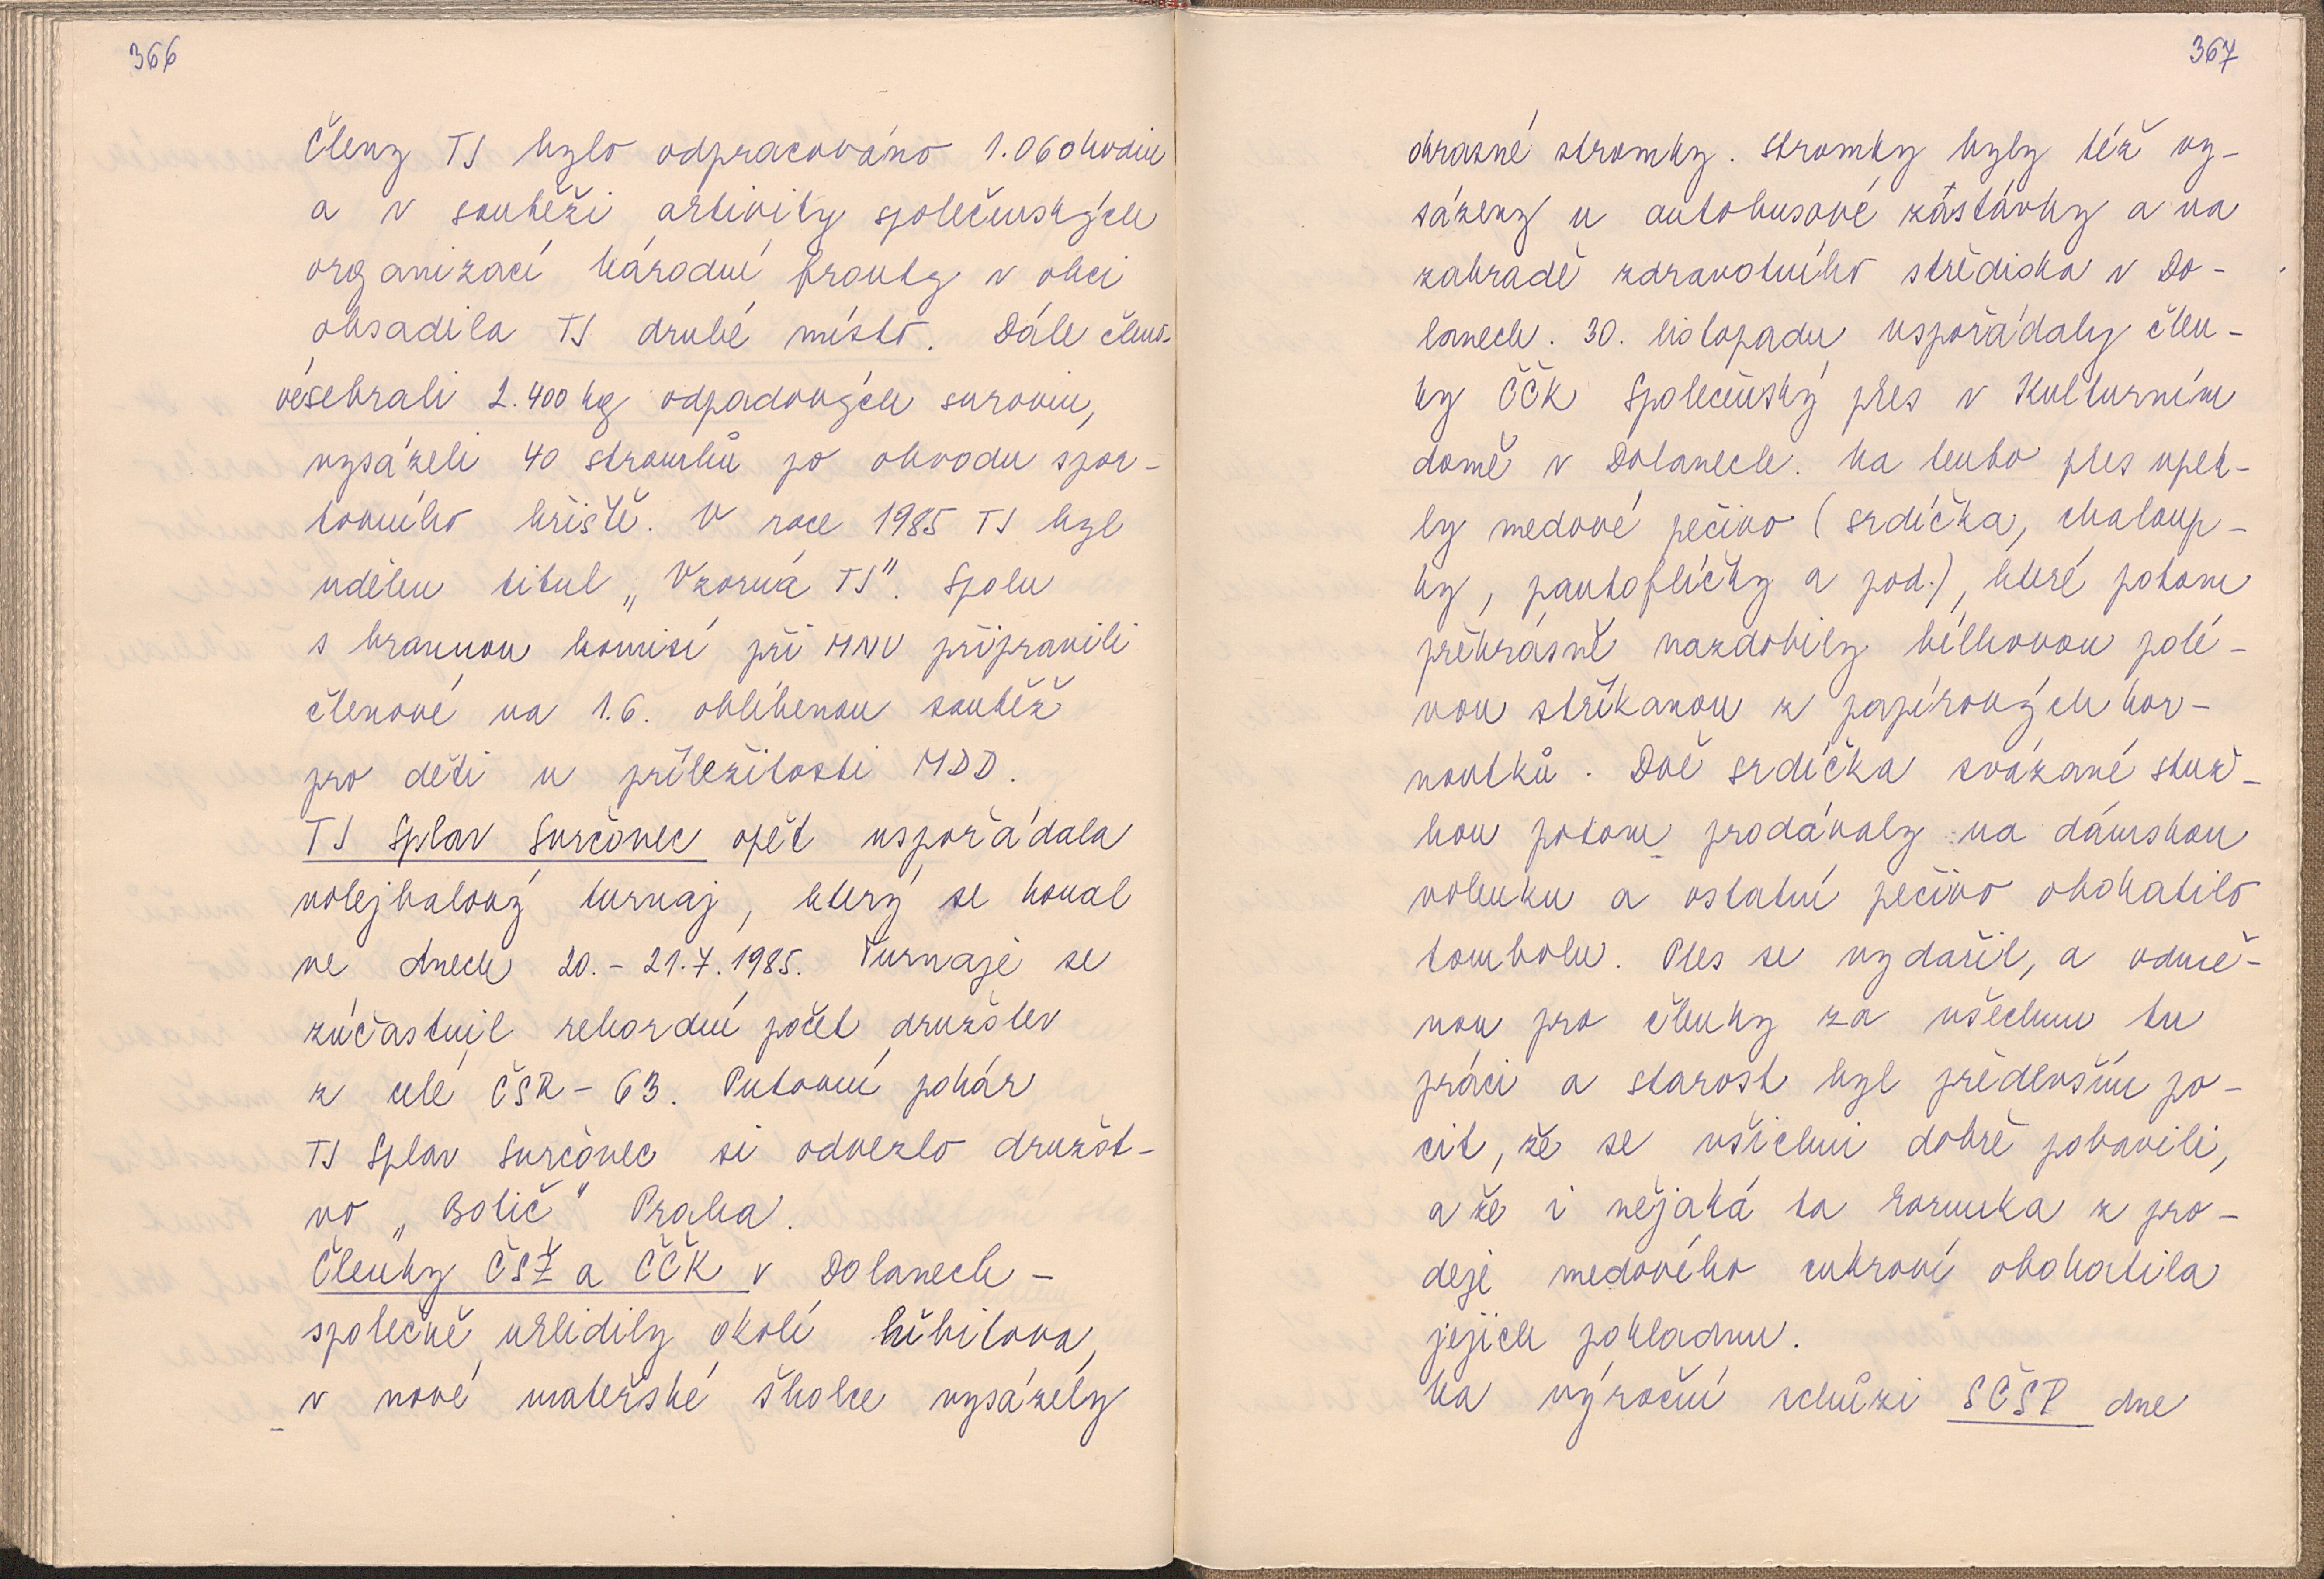 366
Členy TJ bylo odpracováno 1.060 hodin
a v soutěži aktivity společenských
organizací Národní fronty v obci
obsadila TJ druhé místo. Dále členo-
vé sebrali 2.400 kg odpadových surovin,
vysázeli 40 stromků po obvodu spor-
tovního hřiště. V roce 1985 TJ byl
udělen titul „Vzorná TJ". Spolu
s brannou komisí při MNV připravili
členové na 1.6. oblíbenou soutěž
pro děti u příležitosti MDD.
TJ Splav Svrčovec opět uspořádala
volejbalový turnaj, který se konal
ve dnech 20.-21.7.1985. Turnaje se
zúčastnil rekordní počet družstev
z celé ČSR - 63. Putovní pohár
TJ Splav Svrčovec si odvezlo družst-
vo „Botič" Praha.
Členky ČSŽ a ČČK v Dolanech -
společně uklidily okolí hřbitova,
v nové mateřské školce vysázely
367
okrasné stromky. Stromky byly též vy-
sázeny u autobusové zástávky a na
zahradě zdravotního střediska v Do-
lanech. 30. listopadu uspořádaly člen-
ky ČČK Společenský ples v Kulturním
domě v Dolanech. Na tento ples upek-
ly medové pečivo (srdíčka, chaloup-
ky, pantoflíčky a pod.), které potom
překrásně nazdobily bílkovou polé-
vou stříkanou z papírových kor-
noutků. Dvě srdíčka svázané stuž-
kou potom prodávaly na dámskou
volenku a ostatní pečivo obohatilo
tombolu. Ples se vydařil, a odmě-
nou pro členky za všechnu tu
práci a starost byl především po-
cit, že se všichni dobře pobavili,
a že i nějaká ta korunka z pro-
deje medového cukroví obohatila
jejich pokladnu.
Na výroční schůzi SČSP dne